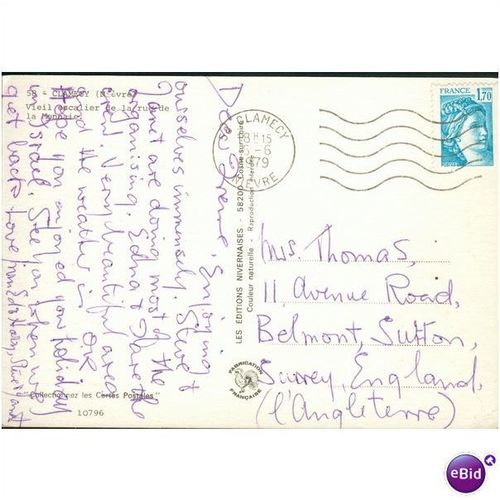 58 - CLAMECY (Nièvre)
Vieil escalier de la rue de
la Monnaie
Dear Irene, Enjoying
ourselves immensely. Steve &
Janet are doing most of the
organising. Edna & I are the
crew! Very beautiful area
and the weather is OK
Hope you enjoyed your holiday
in Israel. See you when we
get back. Love from Eds Harry, Steve & Janet
"Collectionnez les Cartes Postales"
10796
LES ÉDITIONS NIVERNAISES - 58200 Cosne-sur-Loire
Couleur naturelle - Reproduction interdite
FABRICATION
FRANÇAISE
58 CLAMECY
18H15
-6
1979
NIEVRE
FRANCE
1,70
Mrs. Thomas,
11, Avenue Road,
Belmont, Sutton,
Surrey, England,
(l'Angleterre)
eBid